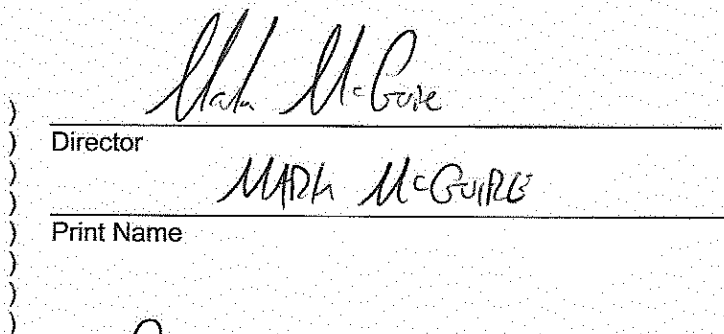 Mark McGuire
) Director
) MARK McGUIRE
) Print Name
)
)
)
)